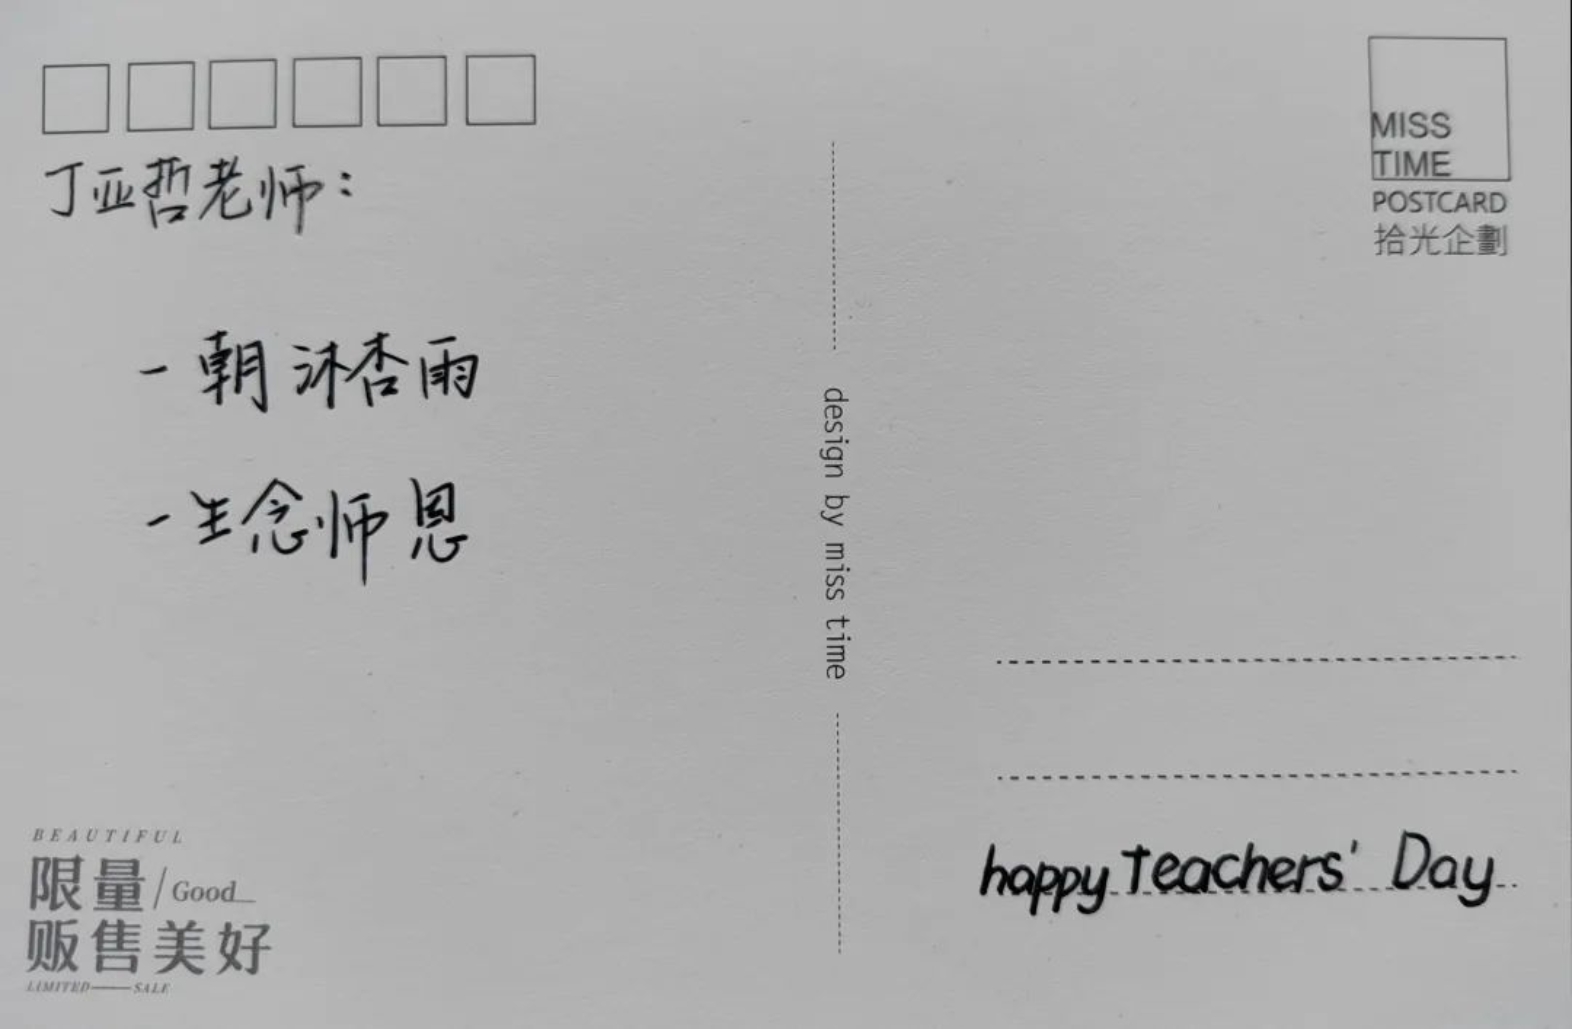 丁亚哲老师：
一朝沐杏雨
一生念师恩
BEAUTIFUL
限量/Good
贩售美好
LIMITED——SALE
design by miss time
MISS
TIME
POSTCARD
拾光企劃
happy Teachers' Day